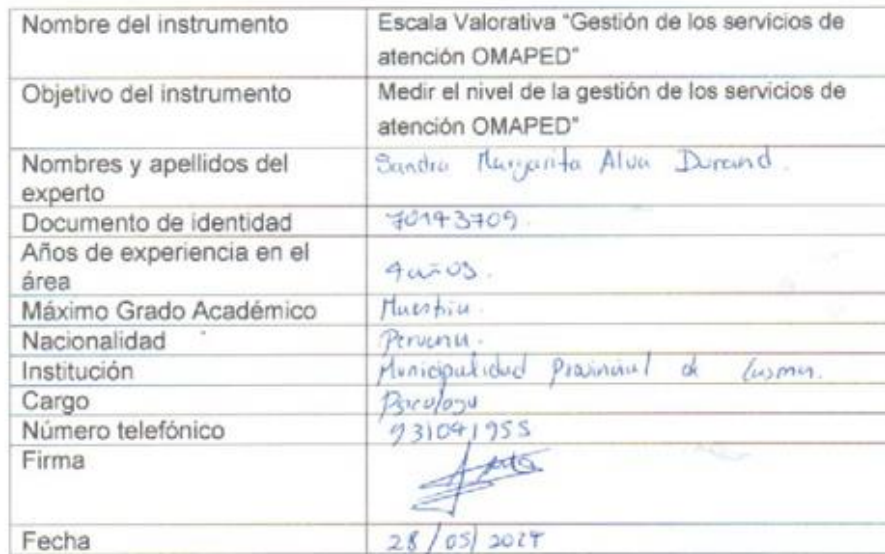 Nombre del instrumento
Escala Valorativa "Gestión de los servicios de
atención OMAPED"
Objetivo del instrumento
Medir el nivel de la gestión de los servicios de
atención OMAPED"
Nombres y apellidos del
experto
Sandra Margarita Alva Durand.
Documento de identidad
70143709.
Años de experiencia en el
área
4 años.
Máximo Grado Académico
Maestria.
Nacionalidad
Peruana.
Institución
Municipalidad Provincial de Casma.
Cargo
Psicologa
Número telefónico
931041955
Firma
Fecha
28/05/2024